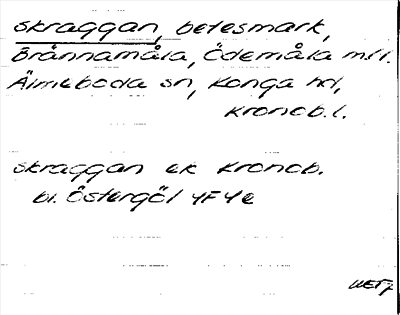 skraggan, betesmark,
Brånnamåla, Ödemåla m.fl.
Älmeboda sn, Konga hd,
Kronob. l.
skraggan ek Kronob.
bl. Östergöl 4F4e